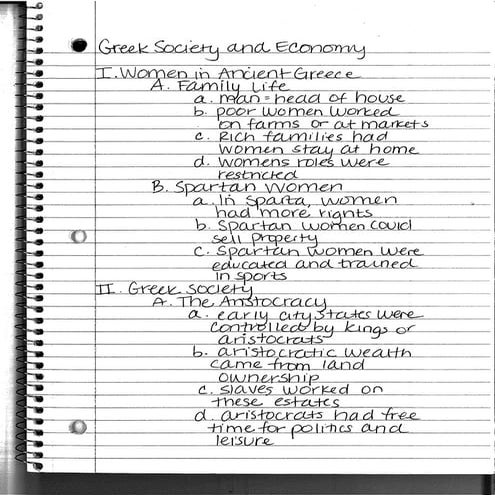 Greek Society and Economy
I. Women in Ancient Greece
A. Family Life
a. man = head of house
b. poor women worked
on farms or at markets
c. Rich families had
women stay at home
d. womens roles were
restricted
B. Spartan Women
a. In Sparta, women
had more rights
b. Spartan women could
sell property
c. Spartan women were
educated and trained
in sports
II. Greek Society
A. The Aristocracy
a. early city states were
controlled by kings or
aristocrats
b. aristocratic wealth
came from land
ownership
c. slaves worked on
these estates
d. aristocrats had free
time for politics and
leisure